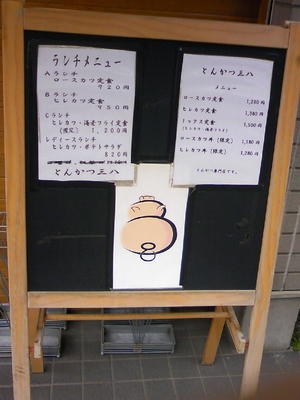 ランチメニュー
Aランチ
ロースカツ定食
920円
Bランチ
ヒレカツ定食
950円
Cランチ
ヒレカツ・海老フライ定食
(限定) 1,200円
レディースランチ
ヒレカツ・ポテトサラダ
820円
とんかつ三八
とんかつ三八
メニュー
ロースカツ定食 1,280円
ヒレカツ定食 1,380円
ミックス定食 1,500円
(ヒレカツ・海老フライ)
ロースカツ丼(限定) 1,180円
ヒレカツ丼(限定) 1,280円
とんかつ専門店です。